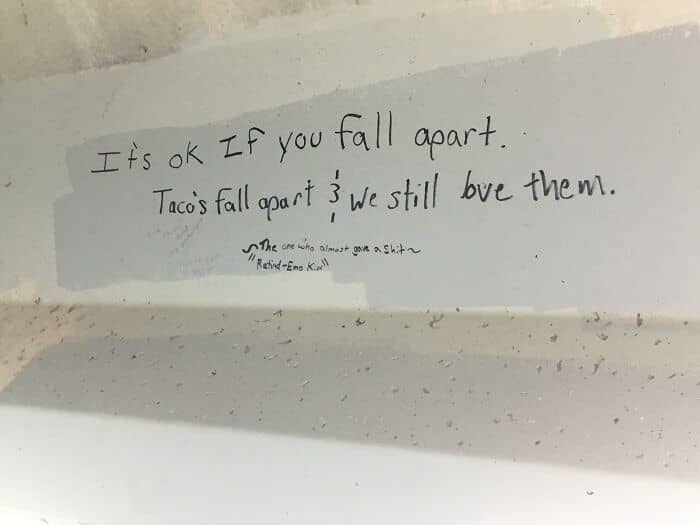 It's ok If you fall apart.
Taco's fall apart & we still love them.
~The one who almost gave a Shit~
"Retired-Emo Kid"